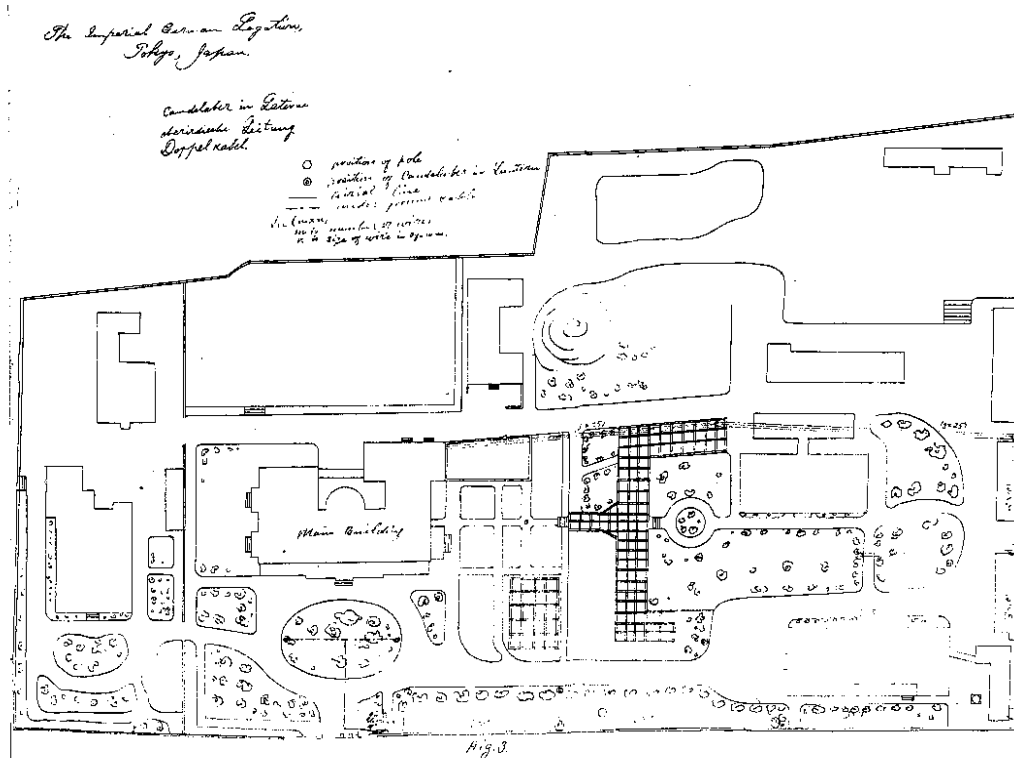 The Imperial German Legation,
Tokyo, Japan.
Candelaber in Laterne
oberirdische Leitung
Doppelkabel.
position of pole
position of Candelaber in Lantern
Aerial Line
under
m is number of wires
n is size of wire in
Main Building
Fig. 3.